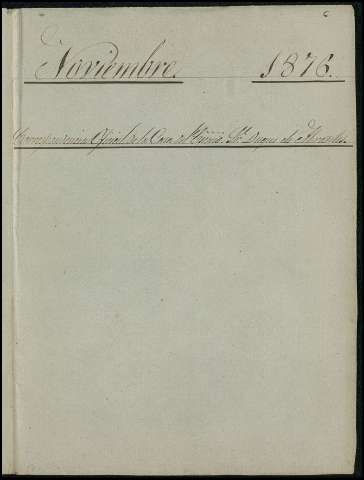 Noviembre. 1876.
Correspondencia Oficial de la Casa del Excmo. Sr. Duque de